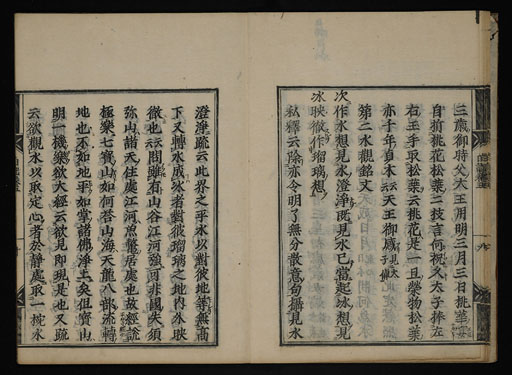 三歳御時父大王用明三月三日桃華宴
自折桃花松葉二枝言何祝又太子捧左
右王手取松葉云桃花是一旦榮物松葉
亦千年貞木云云天王御感見太子傳
第二水觀銘文
次作水想見水澄淨既見水已當起氷想見
氷映徹作瑠璃想
私釋云除亦令明了無分散意句攝見水
澄淨疏云此界之平水以對彼地等無高
下又轉水成氷者對彼瑠璃之地内外映
徹也云云問雖有山谷江河強可非國失須
弥山諸天住處江河魚鼈居處也故經說
極樂七寶山如何答山海天龍八部流轉
地也不如地平如掌諸佛淨土矣但寶山
明一機樂欲大經云欲見即現是也又疏
云欲觀水以取定心者於靜處取一椀水